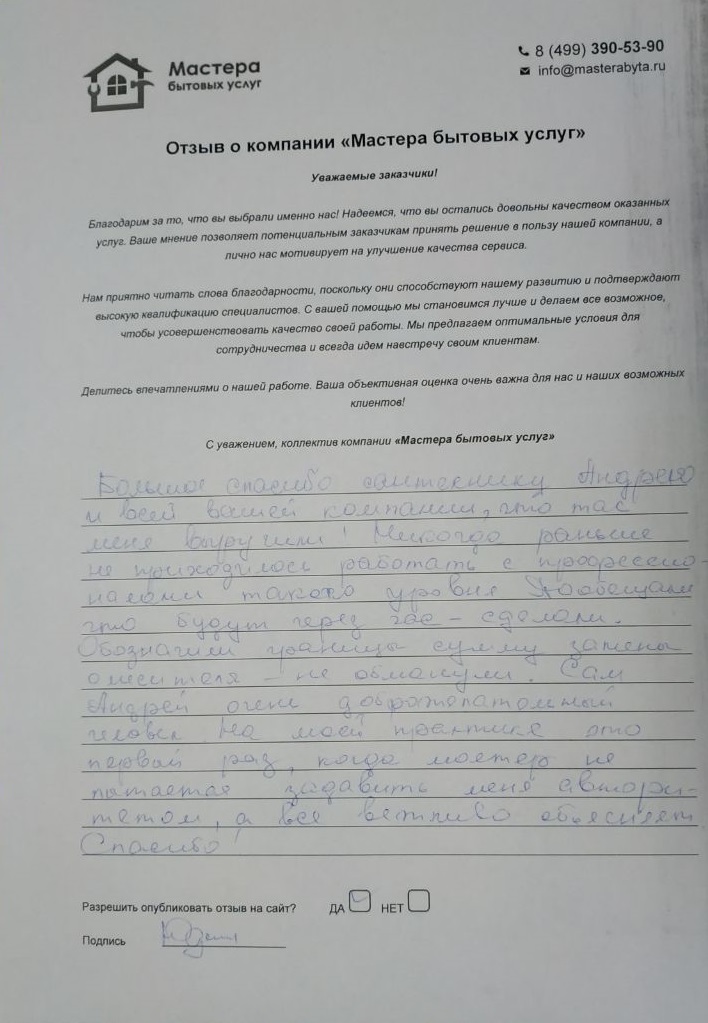 Мастера
бытовых услуг
8 (499) 390-53-90
info@masterabyta.ru
Отзыв о компании «Мастера бытовых услуг»
Уважаемые заказчики!
Благодарим за то, что вы выбрали именно нас! Надеемся, что вы остались довольны качеством оказанных
услуг. Ваше мнение позволяет потенциальным заказчикам принять решение в пользу нашей компании, а
лично нас мотивирует на улучшение качества сервиса.
Нам приятно читать слова благодарности, поскольку они способствуют нашему развитию и подтверждают
высокую квалификацию специалистов. С вашей помощью мы становимся лучше и делаем все возможное,
чтобы усовершенствовать качество своей работы. Мы предлагаем оптимальные условия для
сотрудничества и всегда идем навстречу своим клиентам.
Делитесь впечатлениями о нашей работе. Ваша объективная оценка очень важна для нас и наших возможных
клиентов!
С уважением, коллектив компании «Мастера бытовых услуг»
Большое спасибо сантехнику Андрею
и всей вашей компании, что так
меня выручили! Никогда раньше
не приходилось работать с профессио-
налами такого уровня Пообещали
что будут через час - сделали.
Обозначили границы сумму замены
смесителя - не обманули. Сам
Андрей очень доброжелательный
человек На моей практике это
первый раз, когда мастер не
пытается задавить меня автори-
тетом, а все вежливо объясняет
Спасибо!
Разрешить опубликовать отзыв на сайт? ДА НЕТ
Подпись